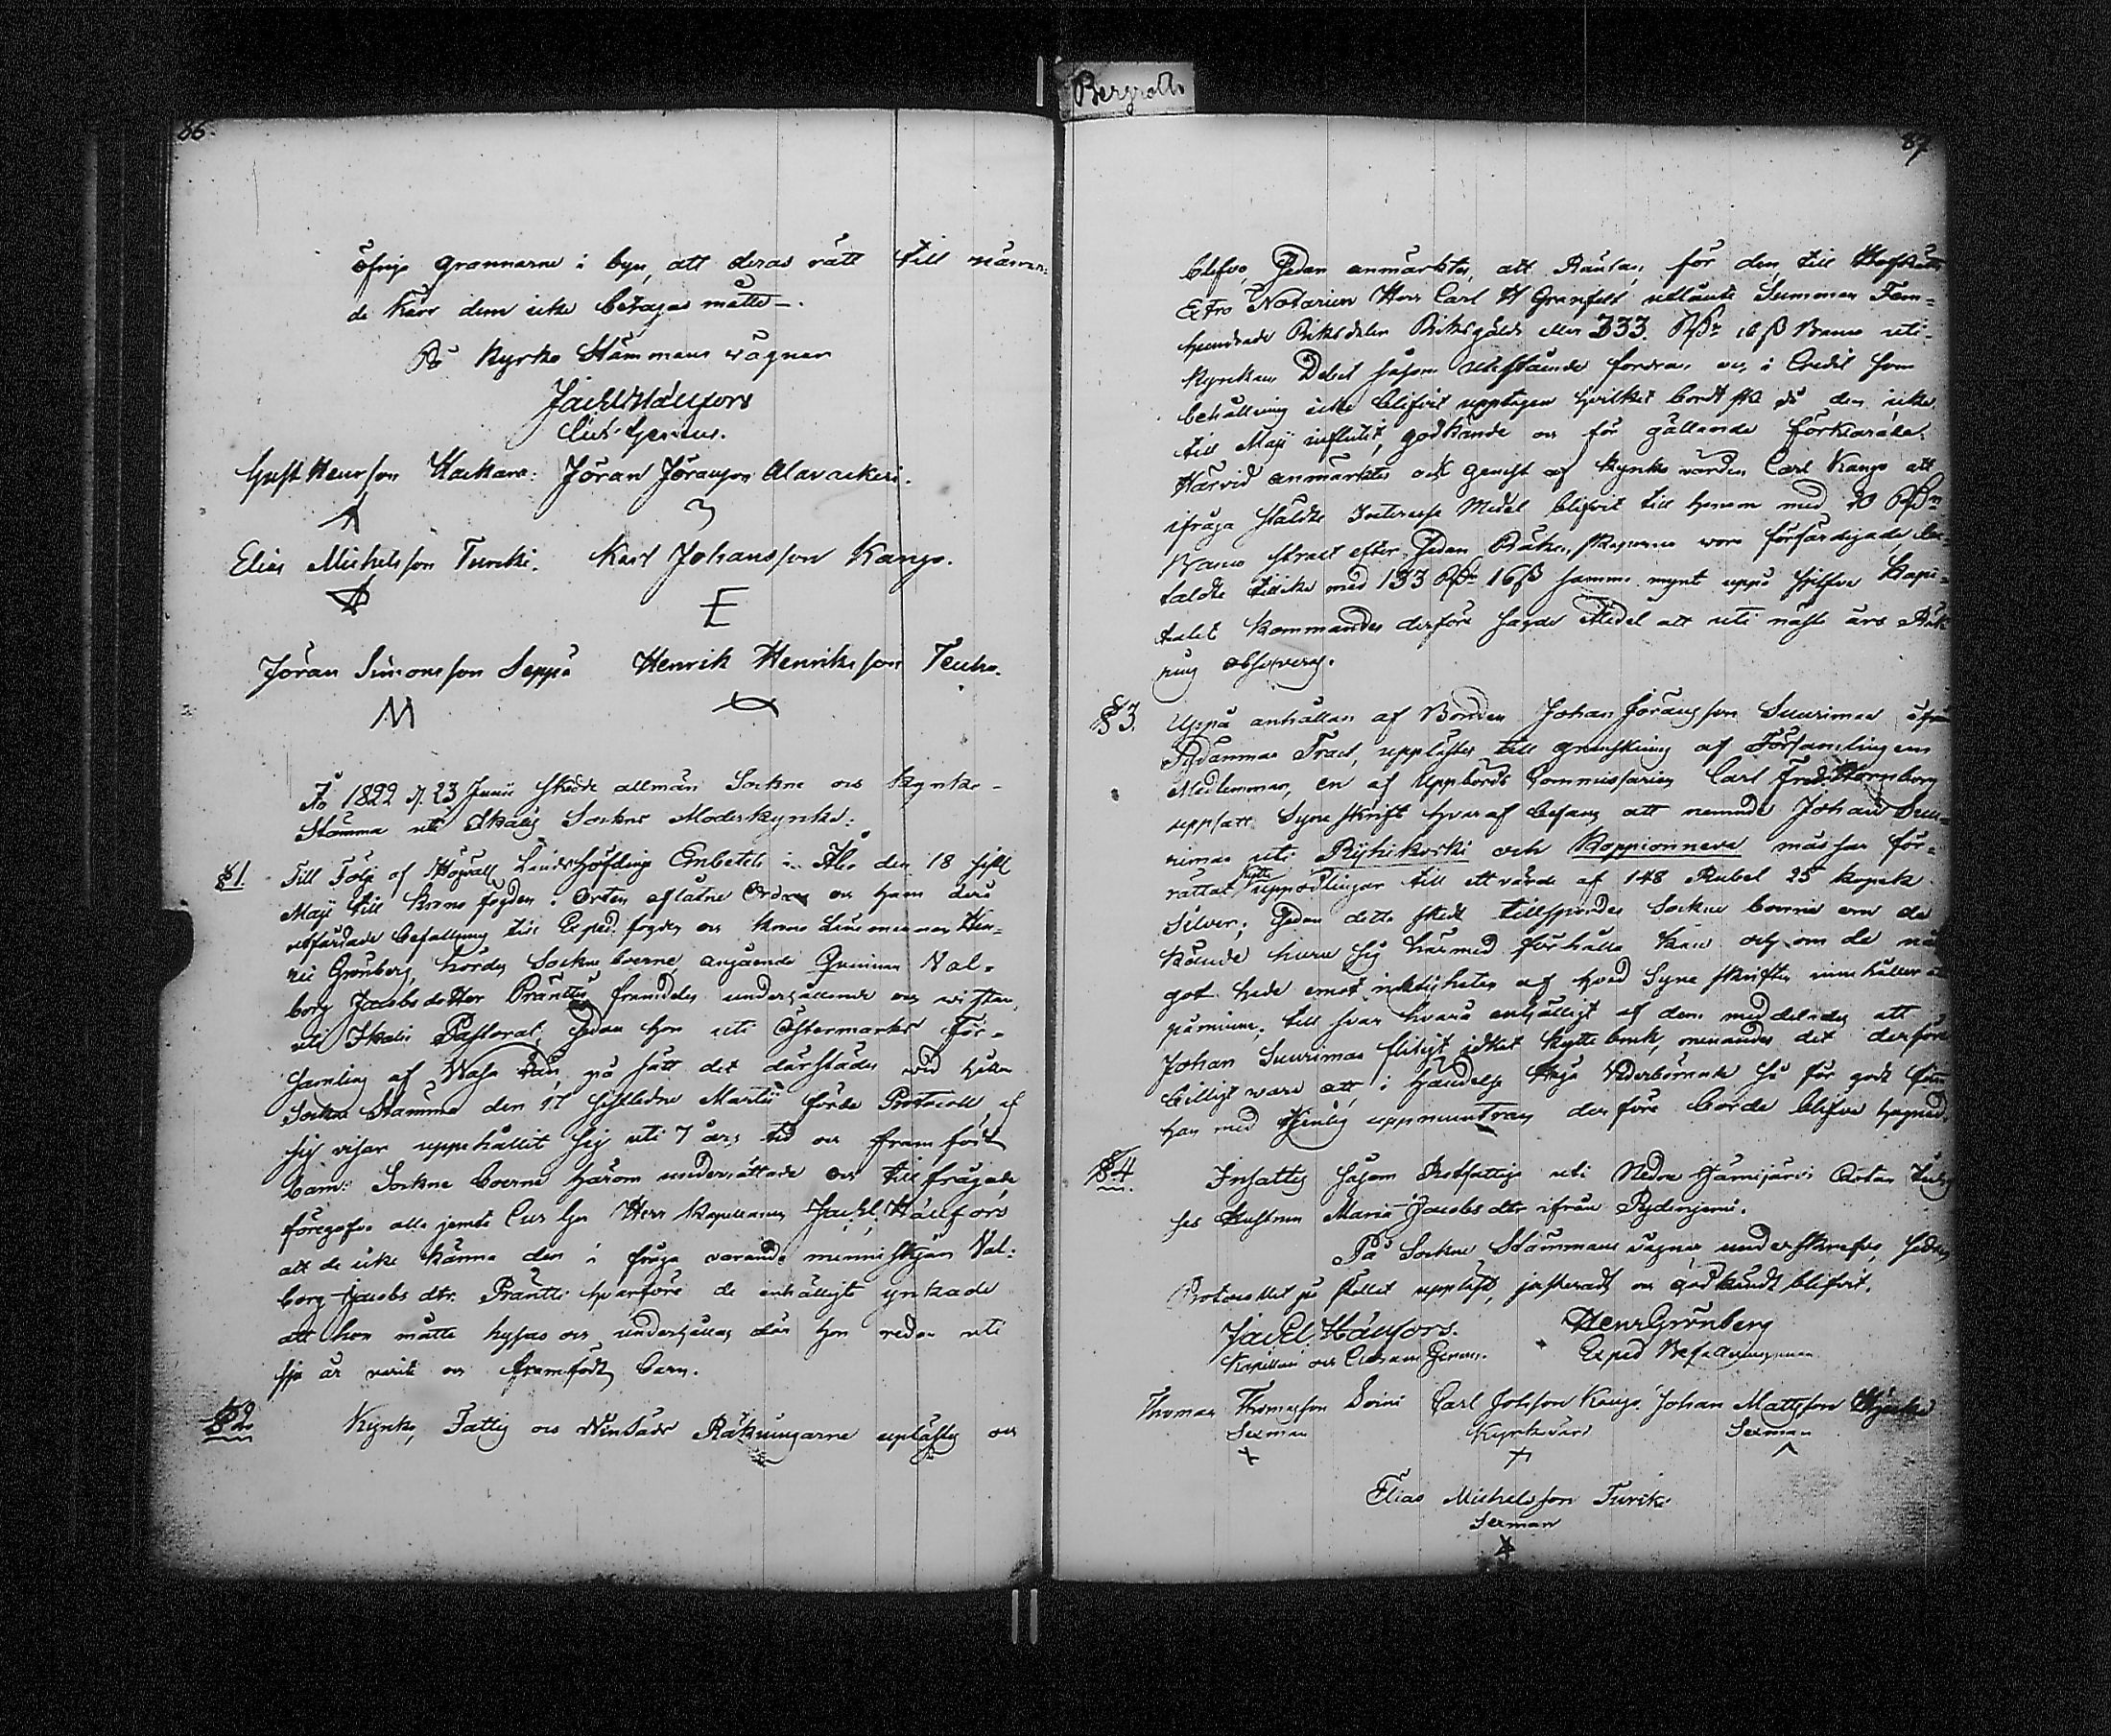 Bergroth
86.
öfrige grannarne i byn, att deras rätt till nämn=
de Kärr dem icke betagas måtte.
På Kyrko Stämmans vägnar
Jac Hänfors
Cur. Gerens.
Gust Henrsson Kaskara. Jöran Jöransson Alavackeri.
Elias Michelsson Turicki. Karl Johansson Kango.
E
Jöran Simonsson Seppä Henrik Henriksson Teuho.
M
Åo 1822 d. 23 Junii skedde allmän Sockne och Kyrko-
Stämma uti Ikalis Sockne Moderkyrka.
§ 1. Till Följe af Höguall Landshöfdinge Embetets i Åbo den 18 sistl
Maji till Krono fogden i Orten aflåtne Ordres och hans derå
utfärdade befallning till Exped. fogden och Krono Länsmannen Hen=
ric Grönberg, hördes Sockne boerne angående Qvinnan Val=
borg Jacobsdotter Pränttis framdeles underhållande och vistan
uti Ikalis Pastorat, sedan hon uti Östermarks För=
samling af Wasa Län, på sätt det därstädes vid hållen
Sockne Stämma den 17 sistledne Martii förde Protocoll af
sig visar uppehållit sig uti 7 års tid och framfödt
barn. Sockne boerne härom underrättade och tillfrågade
föregåfvo alla jemte Cur Ger Herr Kapellanen Jacbl. Hänfors
att de icke känna den i fråga varande menniskjan Val=
borg Jacobs dtr. Präntti hvarföre de enhälligt yrkade
att hon måtte hysas och underhållas där hon redan uti
sju år varit och framfödt barn.
§ 2. Kyrko, Fattig och Winkäds Räkningarne uplästes och
87
blefvo, sedan anmärktes, att Räntan, för den till
Extro Notarien Herr Carl H Granfelt utlånte Summan Fem=
hundrade Riksdaler Riksgälds eller 333. Rdr 16 ß Banco uti
Kyrkans Debet såsom utestående fordran och i Credit som
behållning icke blifvit upptagen hvilket bordt ske då den icke
till Maji influtit, godkände och för gällande förklarade.
Härvid anmärktes ock genast af Kyrko värden Carl Kango att
ifråga stälde Interesse Medel blifvit till honom med 20 Rdr
Banco straxt efter sedan Räkenskaperne voro förfärdigade be=
talde tillika med 133 Rdr 16 ß samma mynt uppå sjelfva Kapi=
talet kommandes derföre sagde Medel att uti nästa års Räk
ning observeras.
§ 3. Uppå anhållan af Bonden Johan Jöransson Suurimaa ifrån
Sydänmaa Tract, upplästes till granskning af Församlingens
Medlemmar, en af Uppbörds Commissarien Carl Fredr. Hornborg
uppsatt Syne skrift hvaraf befans att nemnde Johan Suu=
rimaa uti Ryhikoski och Koppionneva mässar för=
rättat Kytte uppodlingar till ett värde af 148 Rubel 25 kopek
Silver; sedan detta skedt tillspordes Sockne boerne om de
kände huru sig härmed förhålla kan och om de nå
got hade emot riktigheten af hvad Syne skriften innehåller at
påminna, till svar hvarå enhälligt af dem meddelades att
Johan Suurimaa flitigt idkat Kytte bruk, menandes det derföre
billigt vara att, i händelse Höga Vederbörande så för godt funne
han med skälig uppmuntran derföre borde blifva hugnad.
§ 4 Insattes såsom Rotfattige uti Nedra Hämijärvi Rotan
ses Hustrun Maria Jacobs dtr ifrån
På Sockne Stämmans vägnar underskrefvo, sedan
Protocollet på stället uppläst, justeradt och godkändt blifvit.
Jac bl. Hänfors. Henr Grönberg
Kapellan och Curam Gerens. Exped Befallningsman
Thomas Thomasson Soini Carl Johsson Kango. Johan Mattsson
Sexman Kyrkvärd Sexman
Elias Michelsson Turicki
Sexman